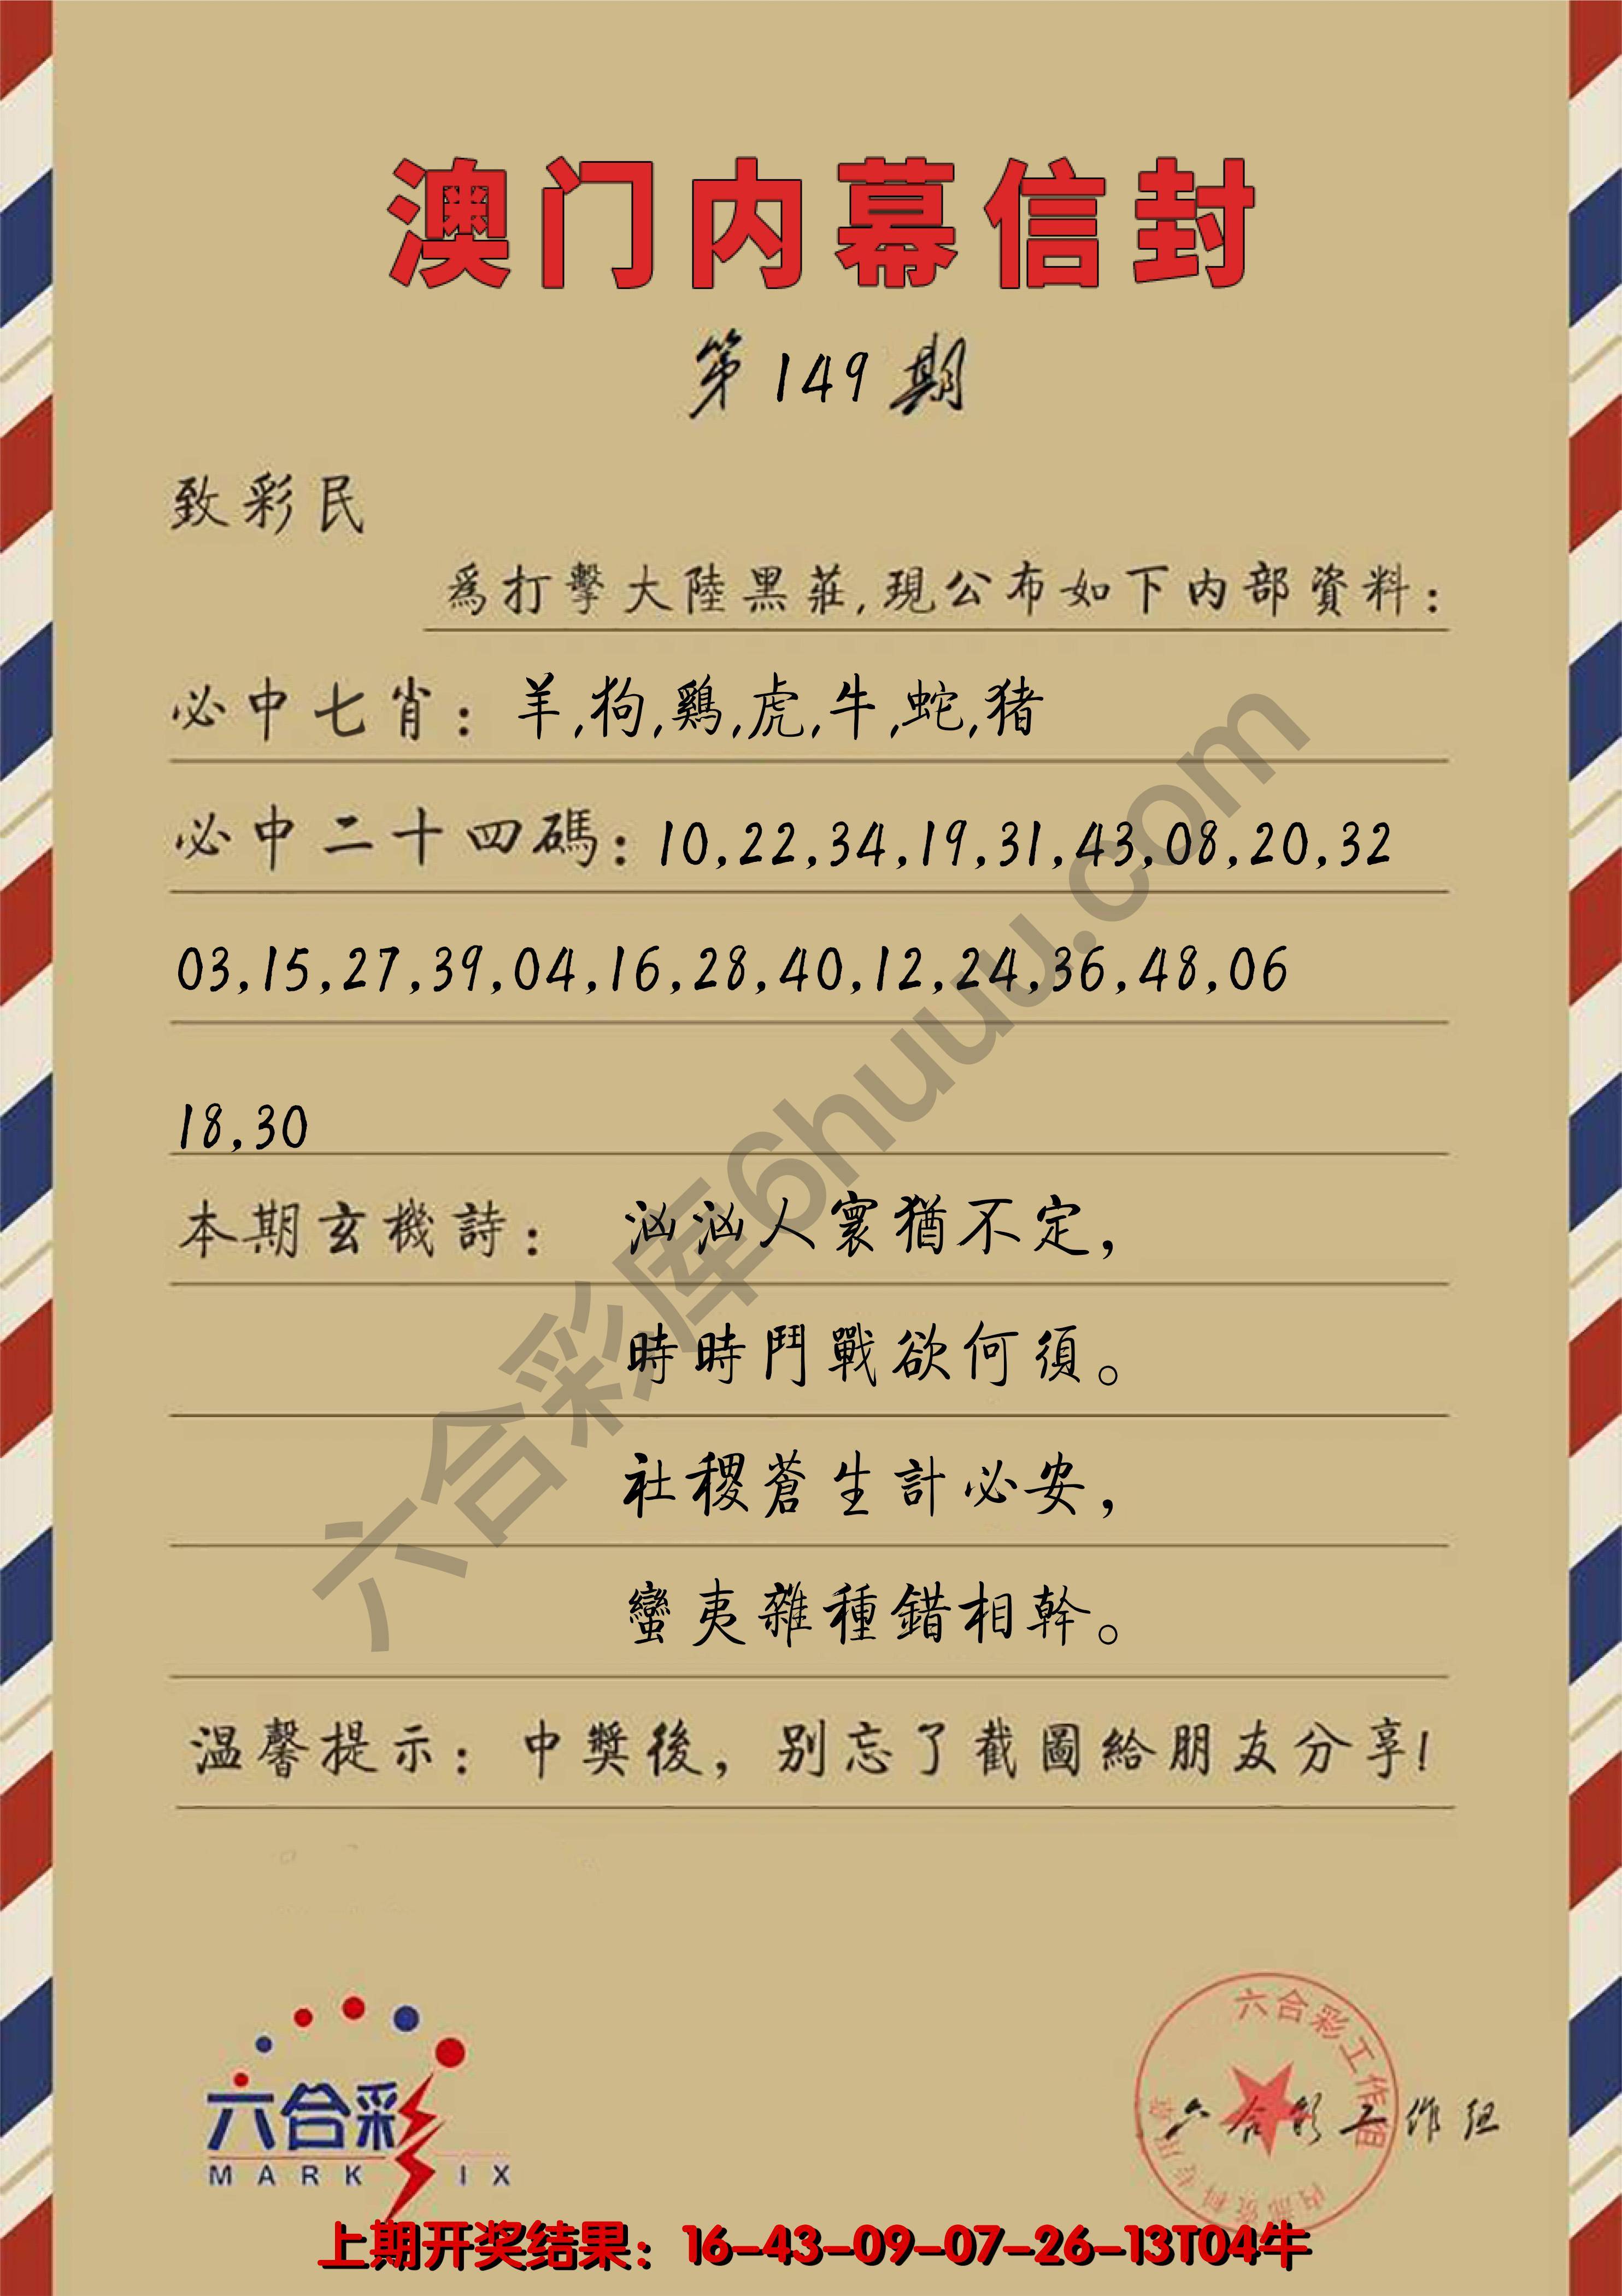 澳门内幕信封
第149期
致彩民
爲打擊大陸黑莊,現公布如下内部資料：
必中七肖：羊,狗,鷄,虎,牛,蛇,猪
必中二十四碼：10,22,34,19,31,43,08,20,32
03,15,27,39,04,16,28,40,12,24,36,48,06
18,30
本期玄機詩：洶洶人寰猶不定，
時時鬥戰欲何須。
社稷蒼生計必安，
蠻夷雜種錯相幹。
温馨提示：中獎後，别忘了截圖給朋友分享!
六合彩库6huuu.com
六合彩
MARK SIX
六合彩工作组
内部资料专用章
六合彩工作组
上期开奖结果：16-43-09-07-26-13T04牛